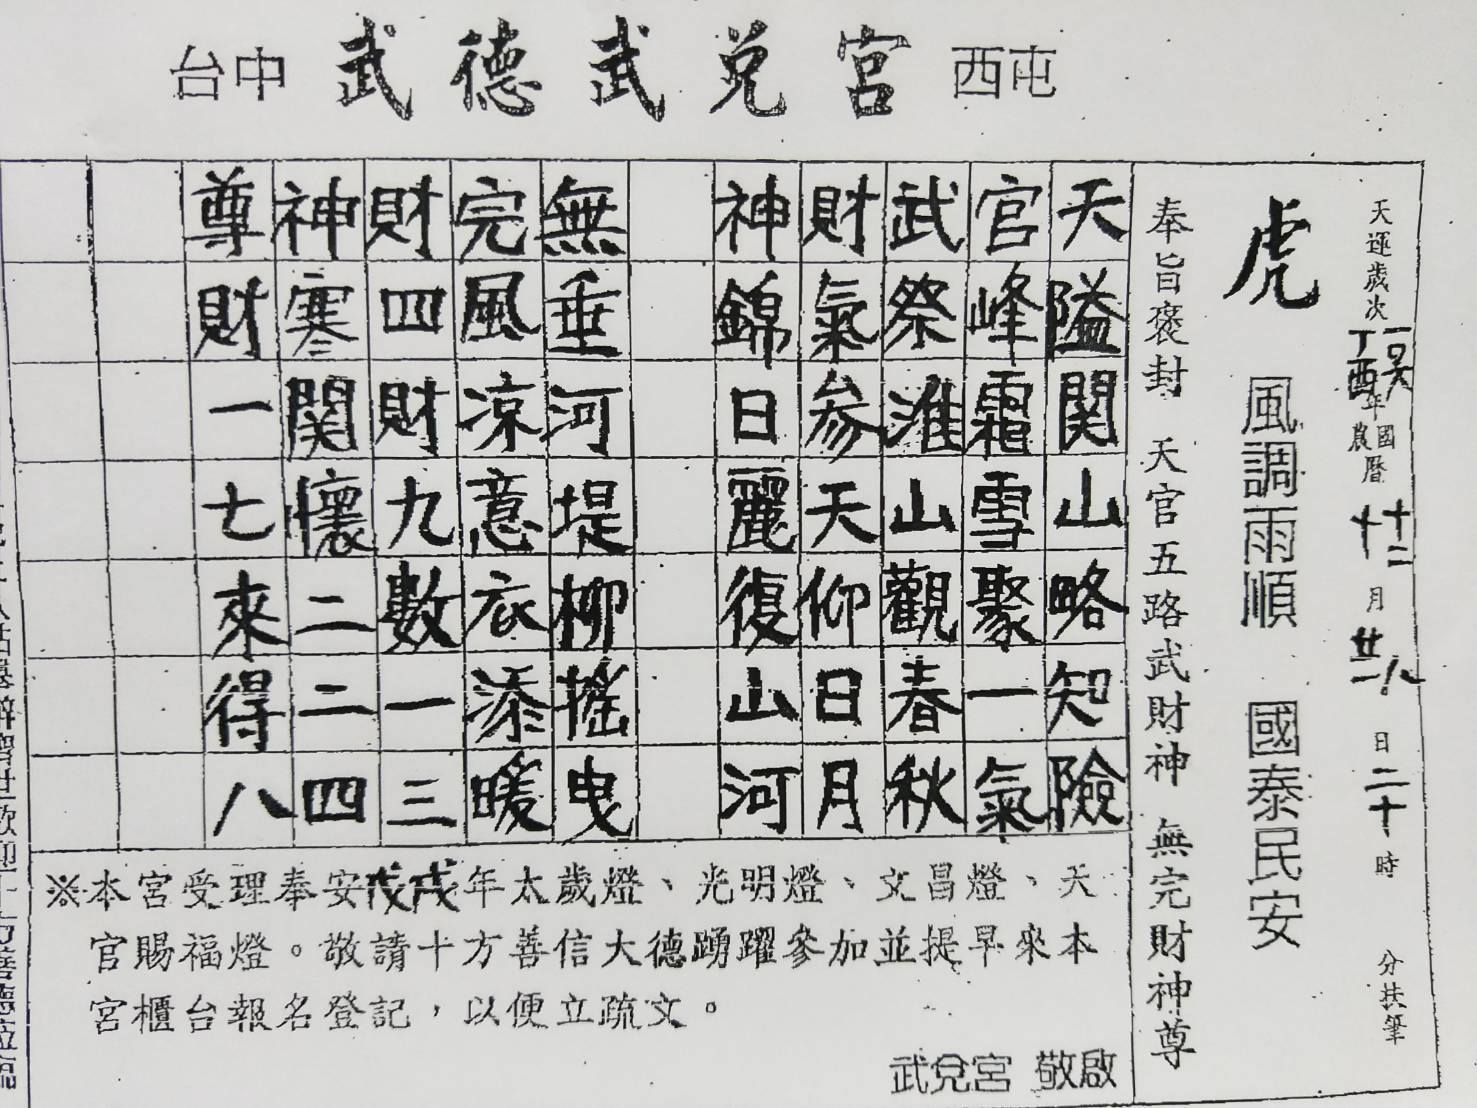 台中 武德武兌宮 西屯
天運歲次
丁酉年 國曆 十二月廿八日二十時 分扶筆
農曆 十一月
虎 風調雨順 國泰民安
奉旨褒封 天官五路武財神 無完財神尊
天隘關山略知險
官峰霜雪聚一氣
武祭淮山觀春秋
財氣參天仰日月
神錦日麗復山河
無垂河堤柳搖曳
完風涼意衣添暖
財四財九數一三
神寒關懷二二四
尊財一七來得八
※本宮受理奉安戊戌年太歲燈、光明燈、文昌燈、天
官賜福燈。敬請十方善信大德踴躍參加並提早來本
宮櫃台報名登記，以便立疏文。
武兌宮 敬啟